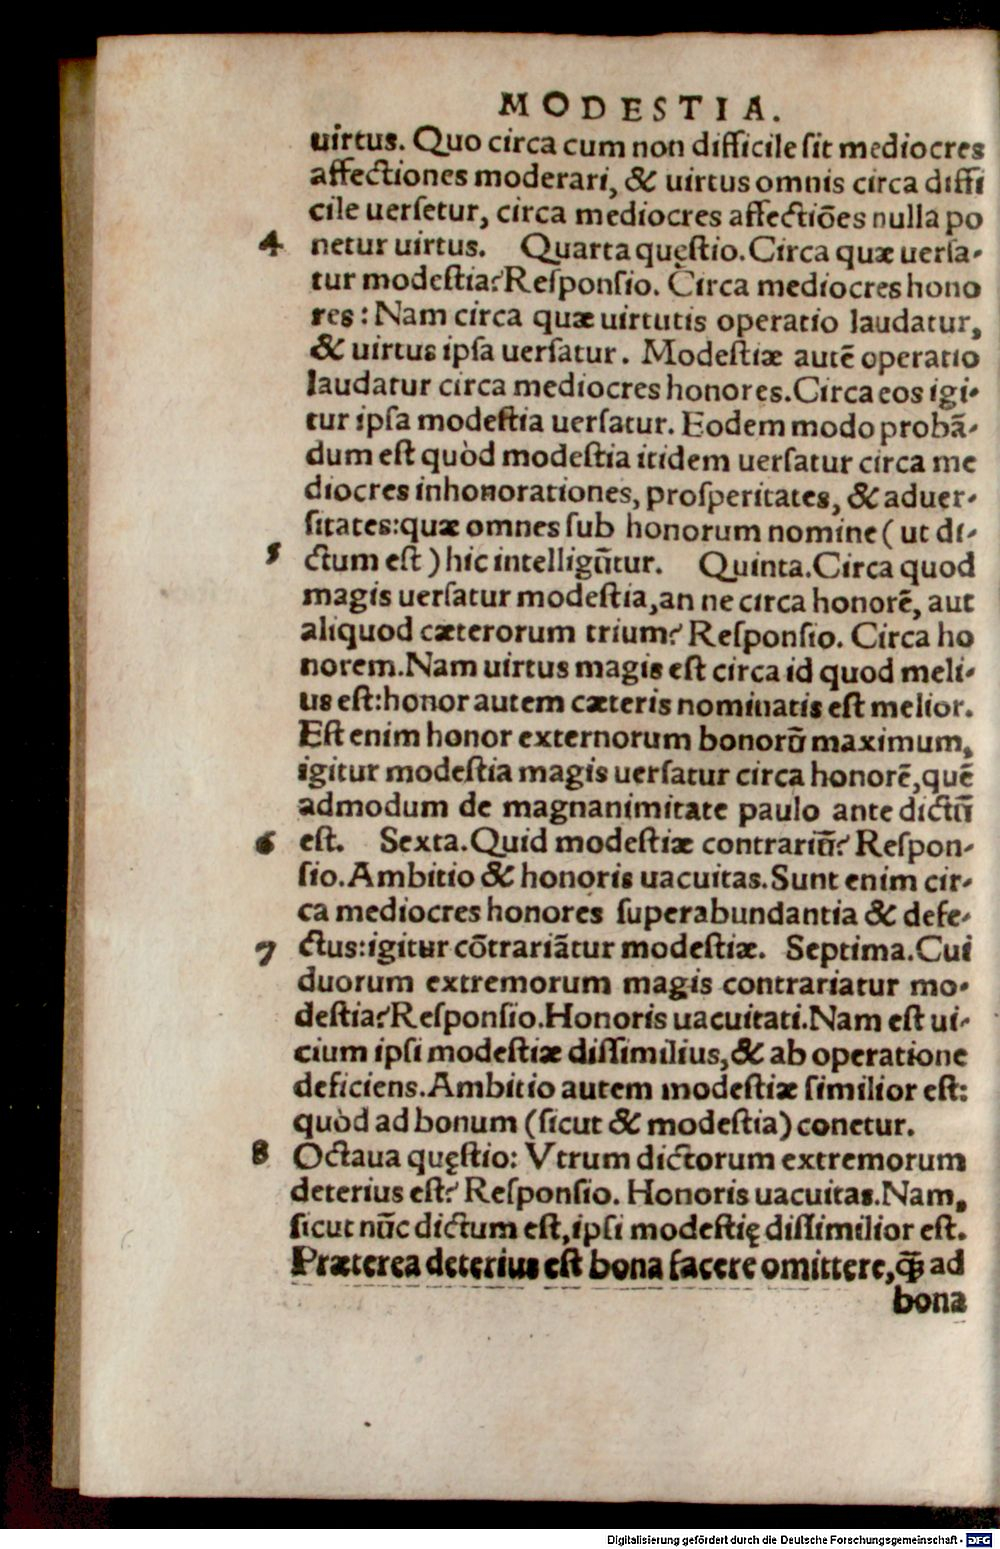 MODESTIA.
uirtus. Quo circa cum non difficile ſit mediocres
affectiones moderari, & uirtus omnis circa diffi
cile uerſetur, circa mediocres affectiões nulla po
4 netur uirtus. Quarta quęſtio. Circa quæ uerſa-
tur modeſtia? Reſponſio. Circa mediocres hono
res: Nam circa quæ uirtutis operatio laudatur,
& uirtus ipſa uerſatur. Modeſtiæ autē operatio
laudatur circa mediocres honores. Circa eos igi-
tur ipſa modeſtia uerſatur. Eodem modo probã-
dum eſt quòd modeſtia itidem uerſatur circa me
diocres inhonorationes, proſperitates, & aduer-
ſitates: quæ omnes ſub honorum nomine (ut di-
5 ctum eſt) hic intelligũtur. Quinta. Circa quod
magis uerſatur modeſtia, an ne circa honorē, aut
aliquod cæterorum trium? Reſponſio. Circa ho
norem. Nam uirtus magis eſt circa id quod meli-
us eſt: honor autem cæteris nominatis eſt melior.
Eſt enim honor externorum bonorũ maximum,
igitur modeſtia magis uerſatur circa honorē, quē
admodum de magnanimitate paulo ante dictũ
6 eſt. Sexta. Quid modeſtiæ contrariũ? Reſpon-
ſio. Ambitio & honoris uacuitas. Sunt enim cir-
ca mediocres honores ſuperabundantia & defe-
7 ctus: igitur cõtrariãtur modeſtiæ. Septima. Cui
duorum extremorum magis contrariatur mo-
deſtia? Reſponſio. Honoris uacuitati. Nam eſt ui-
cium ipſi modeſtiæ diſſimilius, & ab operatione
deficiens. Ambitio autem modeſtiæ ſimilior eſt:
quòd ad bonum (ſicut & modeſtia) conetur.
8 Octaua quęſtio: Vtrum dictorum extremorum
deterius eſt? Reſponſio. Honoris uacuitas. Nam,
ſicut nũc dictum eſt, ipſi modeſtię diſſimilior eſt.
Præterea deterius eſt bona facere omittere, q̃ ad
bona
Digitalisierung gefördert durch die Deutsche Forschungsgemeinschaft - DFG